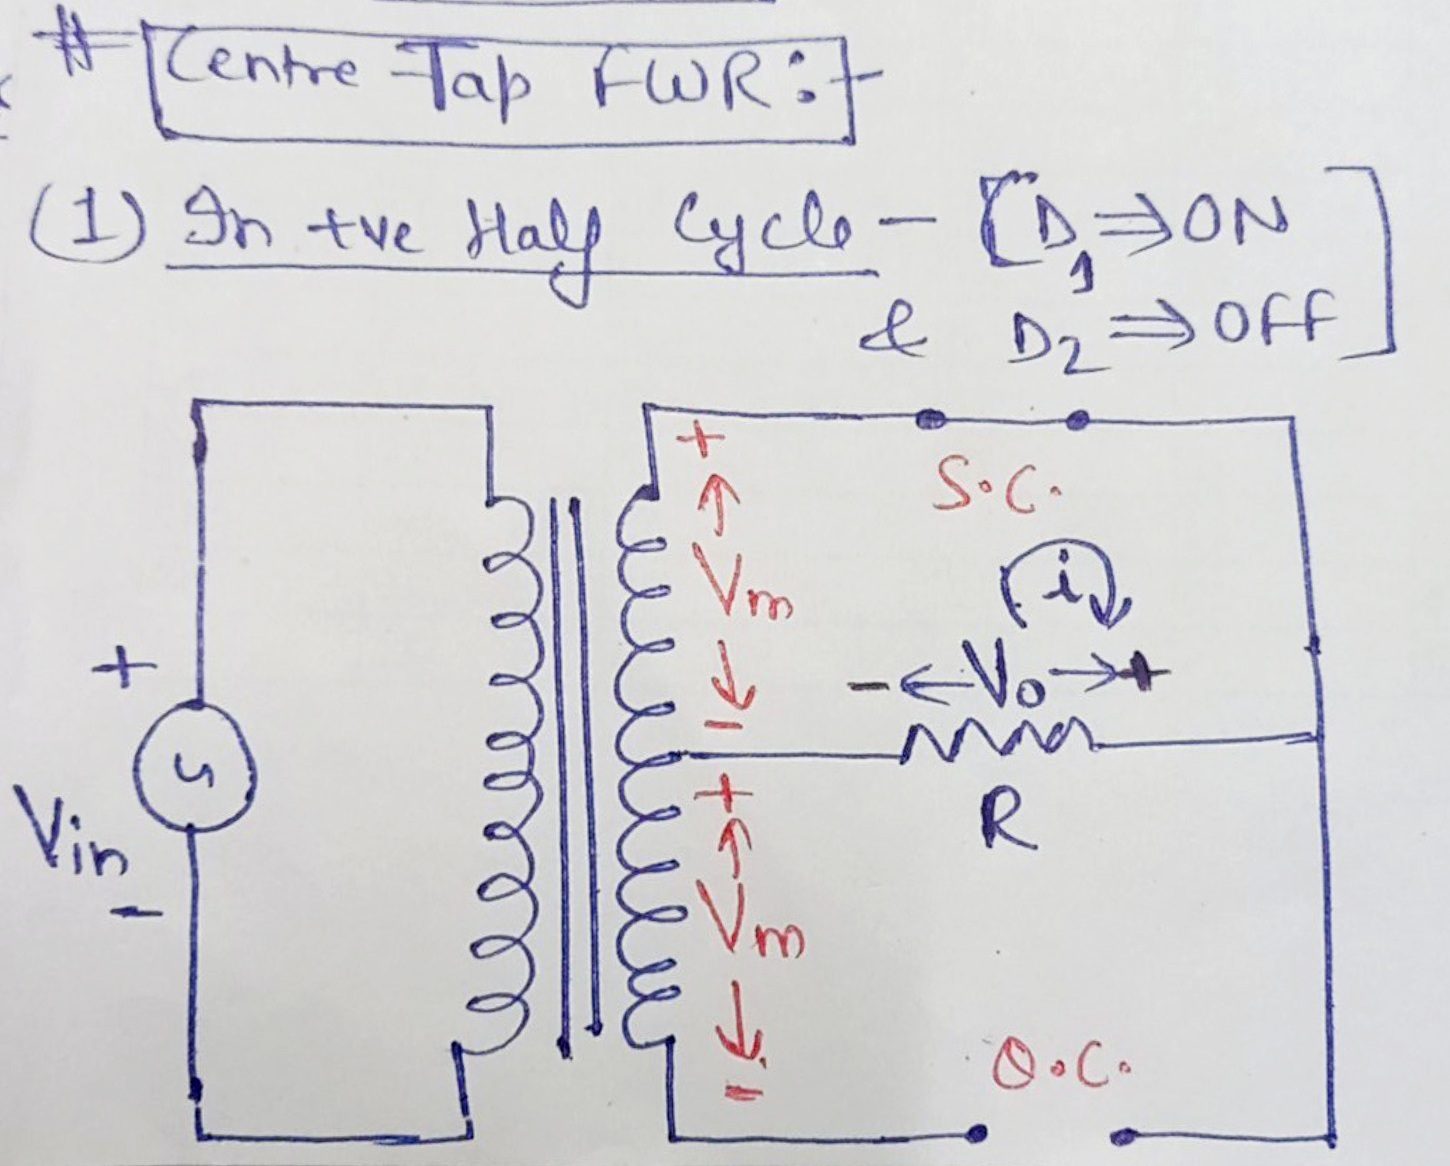 # Centre Tap FWR:-
(1) In +ve Half Cycle - [D1 ⇒ ON
& D2 ⇒ OFF]
+
S.C.
↑
Vm
i
↓
+
- ← Vo → +
-
+
R
Vin
↑
Vm
-
↓
O.C.
-